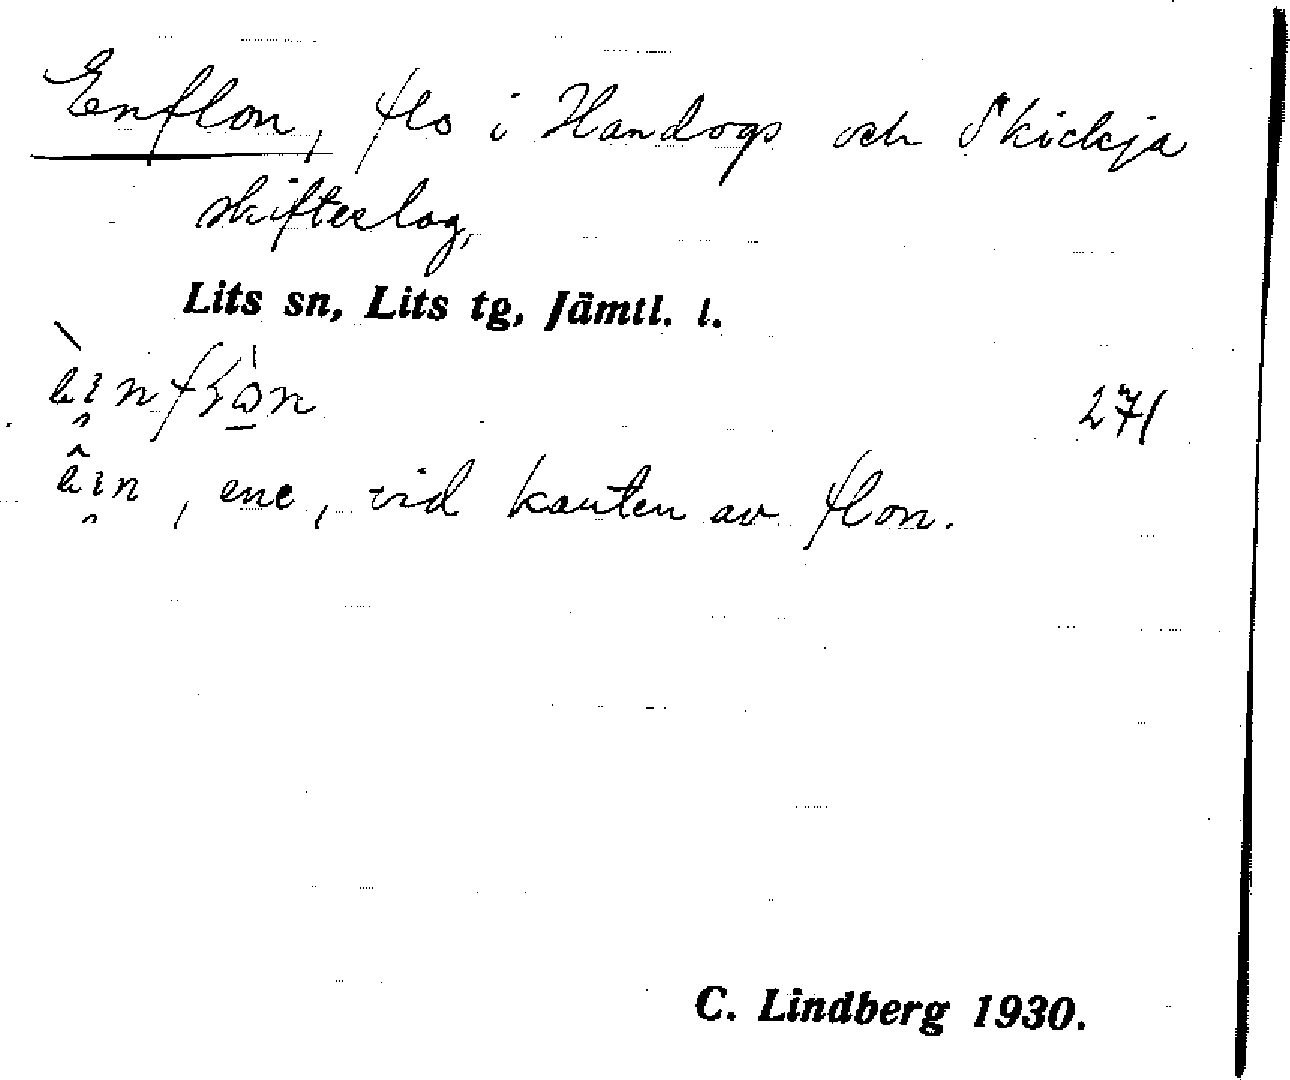 Enflon, flo i Handogs och Skickja
skifteslag,
Lits sn, Lits tg, Jämtl. l.
271
, ene, vid kanten av flon.
C. Lindberg 1930.